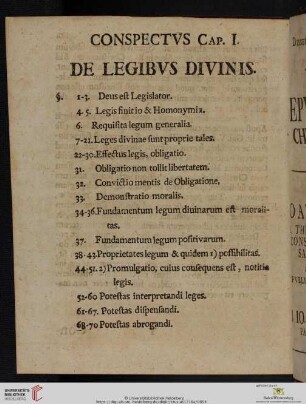 CONSPECTVS CAP. I.
DE LEGIBVS DIVINIS.
§. 1-3. Deus est Legislator.
4. 5. Legis finitio & Homonymia.
6. Requisita legum generalia.
7-21. Leges divinae sunt proprie tales.
22-30. Effectus legis, obligatio.
31. Obligatio non tollit libertatem.
32. Convictio mentis de Obligatione.
33. Demonstratio moralis.
34-36. Fundamentum legum divinarum est morali-
tas.
37. Fundamentum legum positivarum.
38-43. Proprietates legum & quidem 1) possibilitas.
44-51. 2) Promulgatio, cuius consequens est, notitia
legis.
52-60 Potestas interpretandi leges.
61-67. Potestas dispensandi.
68-70 Potestas abrogandi.